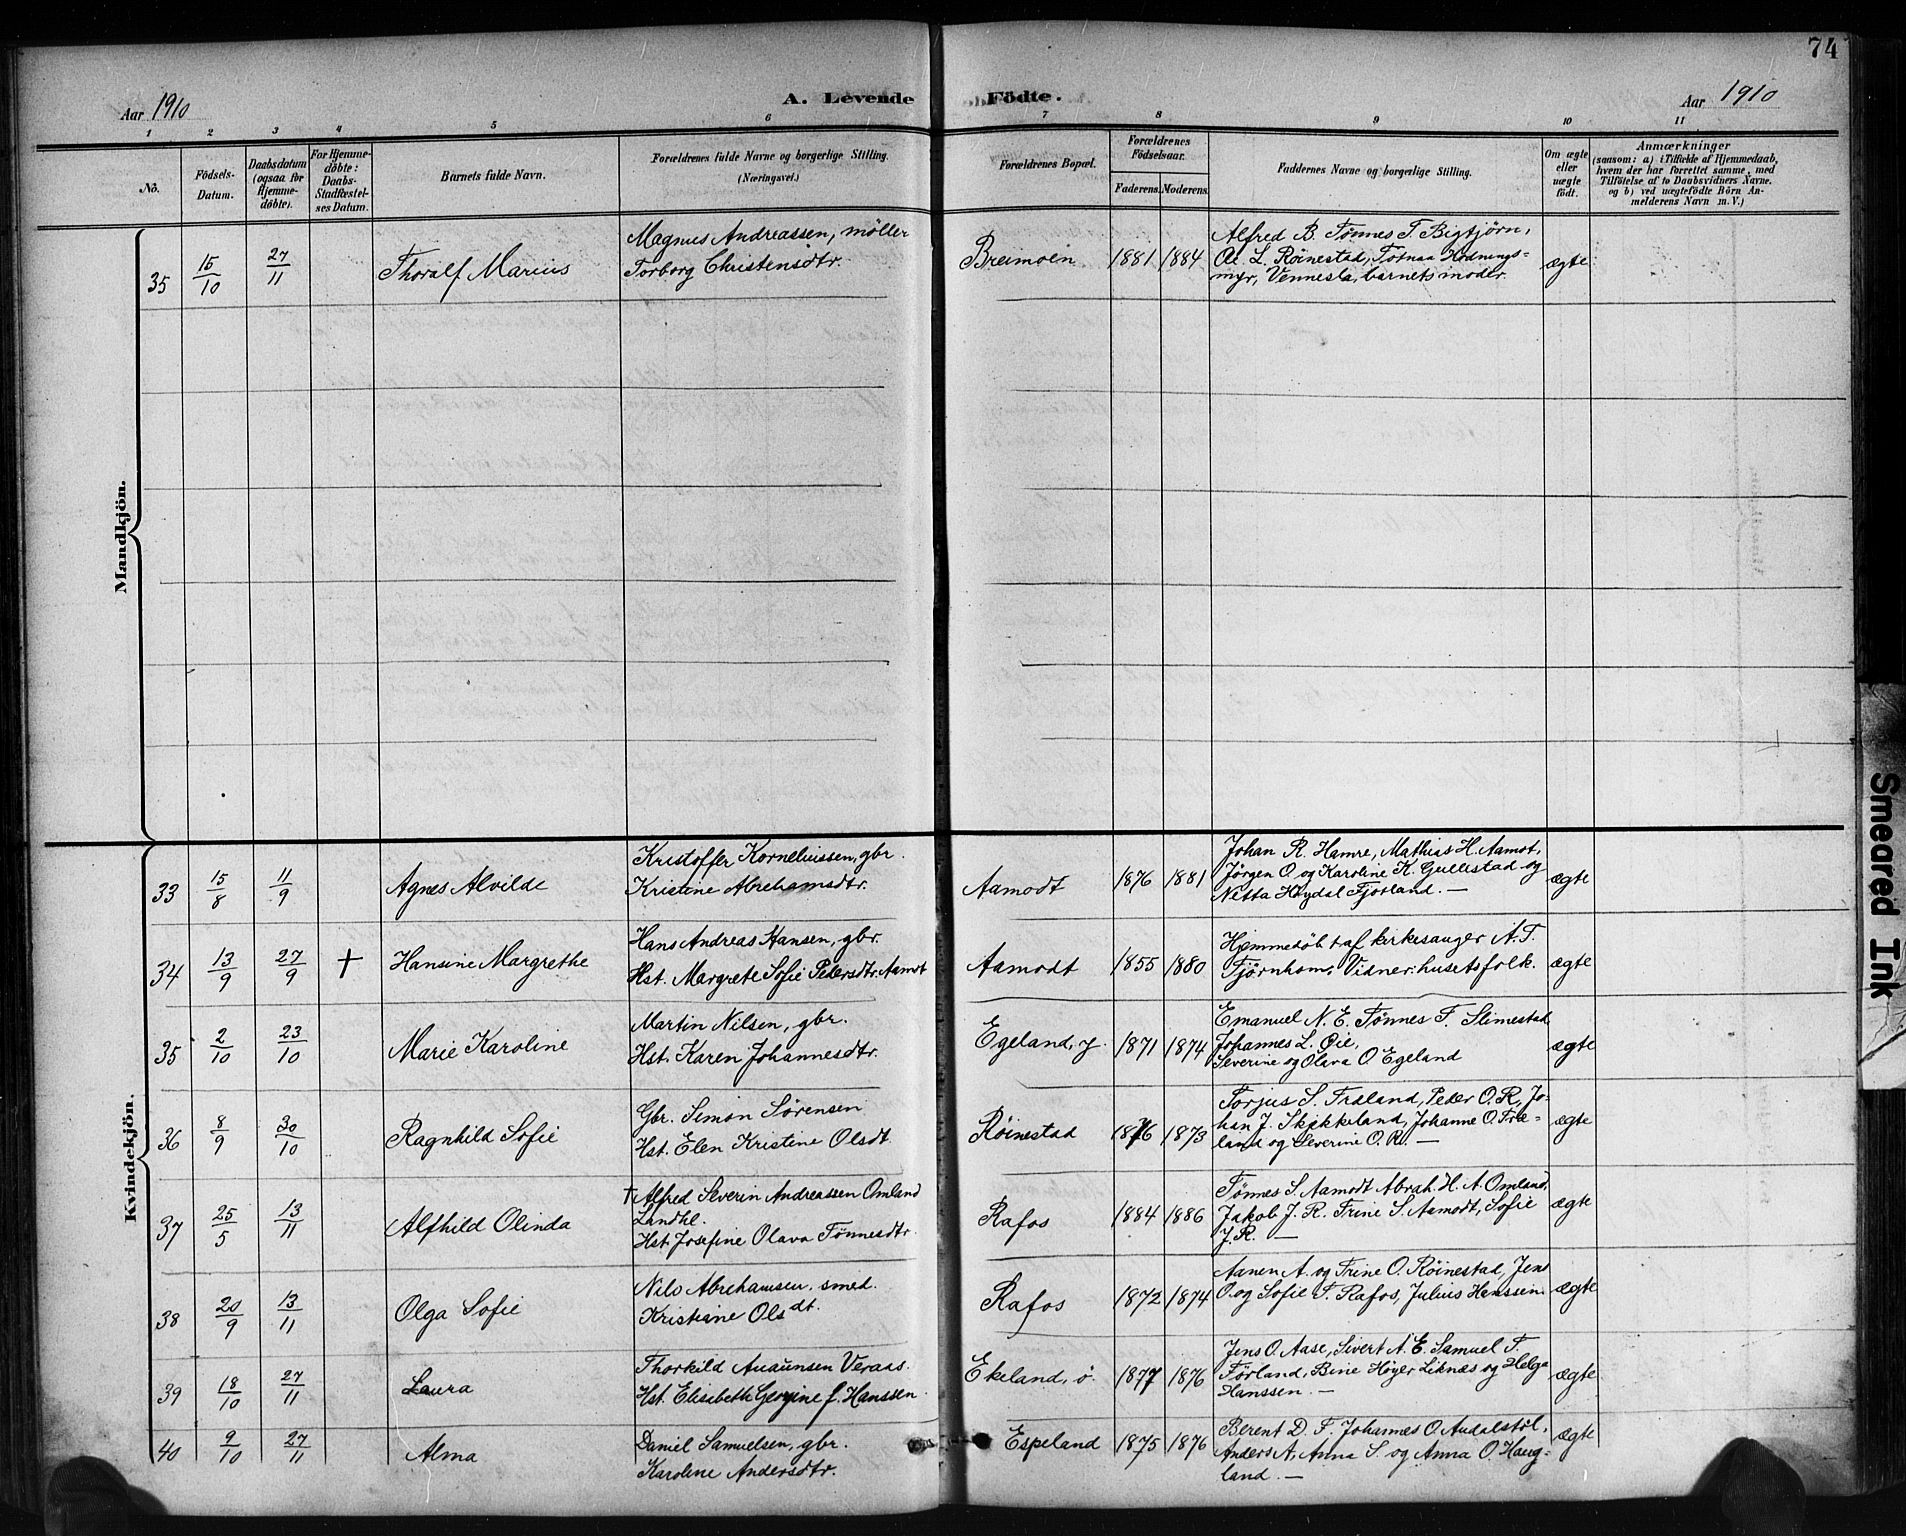 74
Aar 1910
A. Levende Födte.
Aar 1910
1 2 3 4 5 6 7 8 9 10 11
No.
Födsels-Datum.
Daabsdatum (ogsaa for Hjemme-döbte).
For Hjemme-döbte: Daabs-Stadfæstelses Datum.
Barnets fulde Navn.
Forældrenes fulde Navne og borgerlige Stilling. (Næringsvei.)
Forældrenes Bopæl.
Forældrenes Födselsaar.
Faderens. Moderens.
Faddernes Navne og borgerlige Stilling.
Om ægte eller uægte födt.
Anmærkninger
(saasom: a) i Tilfælde af Hjemmedaab,
hvem der har forrettet samme, med
Tilföielse af to Daabsvidners Navne,
og b) ved uægtefödte Börn An-
melderens Navn m. V.)
Mandkjön.
35 15/10 27/11 Thoralf Marius
Magnus Andreassen, møller
Torborg Christensdtr.
Breimoen 1881 1884
Alfred B. Tønnes T. Bigtjørn,
L. Røinestad,
myr, Vennesla, barnets moder.
ægte
Kvindekjön.
33 15/8 11/9 Agnes Alvilde
Kristoffer Korneliussen, gbr.
Kristine Abrehamsdtr.
Aamodt 1876 1881
Johan R. Hamre, Mathias H. Aamot,
Jørgen O. og Karoline K. Gullestad og
Netta Høydal Fjotland. —
ægte
34 13/9 27/9 + Hansine Margrethe
Hans Andreas Hansen, gbr.
Hst. Margrete Sofie Pedersdtr. Aamot
Aamodt 1855 1880
Hjemmedøbt af kirkesanger A. T.
Tjørnhom. Vidner: husets folk.
ægte
35 2/10 23/10 Marie Karoline
Martin Nilsen, gbr.
Hst. Karen Johannesdtr.
Egeland, y. 1871 1874
Emanuel N. E. Tønnes F. Slimestad,
Johannes L. Øie,
Severine og Olava O Egeland
ægte
36 8/9 30/10 Ragnhild Sofie
Gbr. Simon Sørensen
Hst. Elen Kristine Olsdt.
Røinestad 1876 1873
Torjus S. Træland, Peder O. R, Jo-
han J. Skjekkeland, Johanne O. Træ-
land og Severine O. R. —
ægte
37 25/5 13/11 Alfhild Olinda
Alfred Severin Andreassen Omland
Landhl.
Hst. Josefine Olava Tønnesdtr.
Rafos 1884 1886
Tønnes S. Aamodt Abrah. H. A. Omland,
Jakob J. R. Trine S. Aamodt, Sofie
J. R. —
ægte
38 20/9 13/11 Olga Sofie
Nils Abrehamsen, smed.
Kristiane Olsdt.
Rafos 1872 1874
Aanen A. og Trine O. Røinestad, Jens
O. og Sofie T. Rafos, Julius Hanssen.
ægte
39 18/10 27/11 Laura
Thorkild Auaunsen Veraas.
Hst. Elisabeth Georgine f. Hanssen.
Ekeland, ø. 1877 1876
Jens O. Aase, Sivert A. E. Samuel T.
Førland, Bine Høyer Liknæs og Helga
Hanssen. —
ægte
40 9/10 27/11 Alma
Daniel Samuelsen, gbr.
Karoline Andersdtr.
Espeland 1875 1876
Berent D. F. Johannes O. Audalstøl,
Anders A, Anna S. og Anna O. Haug-
land. —
ægte
Smeared Ink